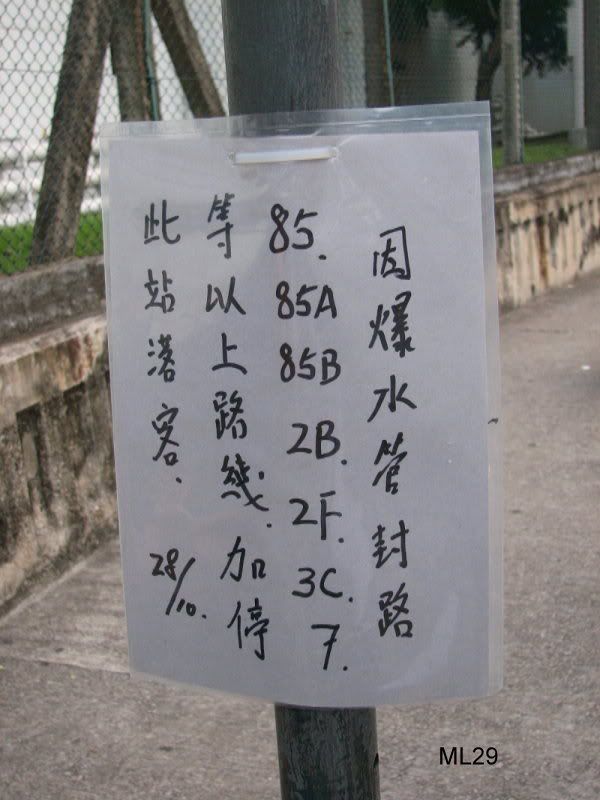 因爆水管封路
85. 85A 85B 2B. 2F. 3C. 7.
等以上路綫.加停
此站落客.
28/10.
ML29